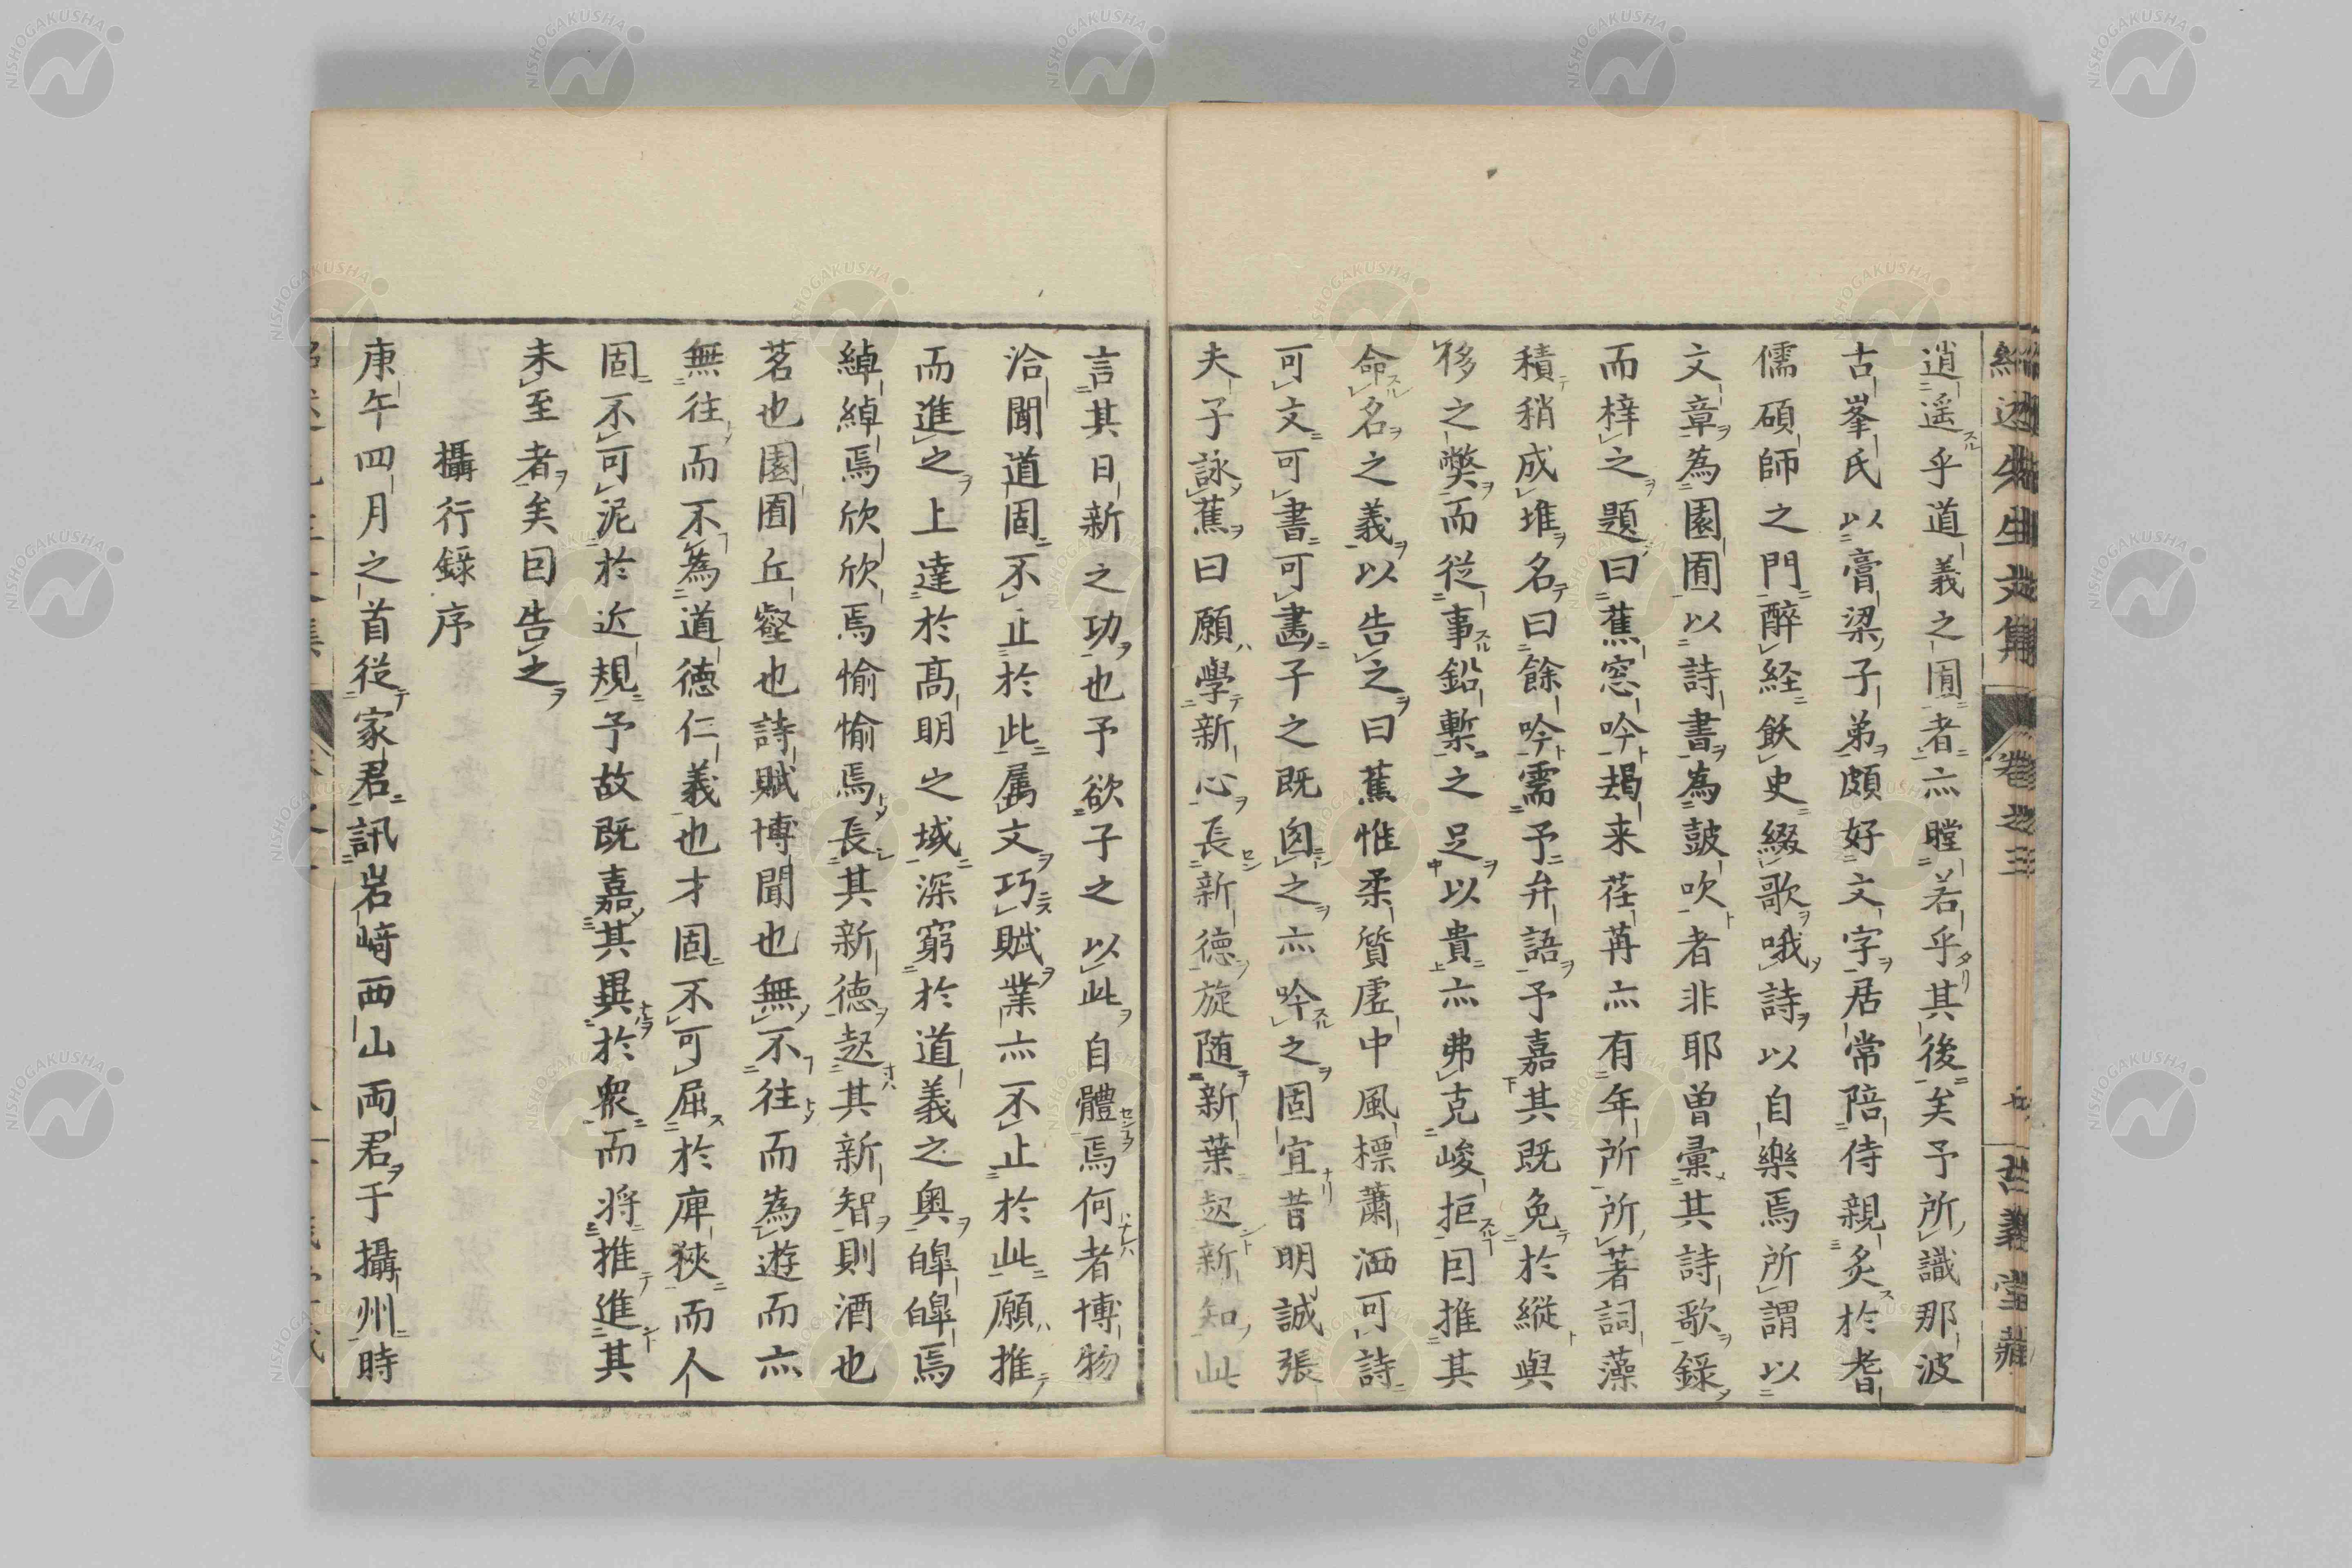 紹述先生文集 卷之三 古義堂藏
逍遥乎道義之囿者亦瞠若乎其後矣予所識那波
古峯氏以膏梁子弟頗好文字居常陪侍親炙於耆
儒碩師之門醉経飫史綴歌哦詩以自樂焉所謂以
文章為園囿以詩書為鼓吹者非耶曽彙其詩歌録
而梓之題曰蕉窓吟朅来荏苒亦有年所所著詞藻
積稍成堆名曰餘吟需予弁語予嘉其既免於縦與
侈之獘而従事鉛槧之足以貴亦弗克峻拒因推其
命名之義以告之曰蕉惟柔質虚中風標蕭洒可詩
可文可書可畵子之既因之亦吟之固宜昔明誠張
夫子詠蕉曰願學新心長新德旋随新葉起新知此
言其日新之功也予欲子之以此自體焉何者博物
洽聞道固不止於此属文巧賦業亦不止於此願推
而進之上達於髙明之域深窮於道義之奥皥皥焉
綽綽焉欣欣焉愉愉焉長其新德起其新智則酒也
茗也園囿丘壑也詩賦博聞也無不往而為遊而亦
無往而不為道德仁義也才固不可屈於庳狹而人
固不可泥於近規予故既嘉其異於衆而将推進其
未至者矣因告之
攝行錄序
庚午四月之首従家君訊岩﨑西山両君于攝州時